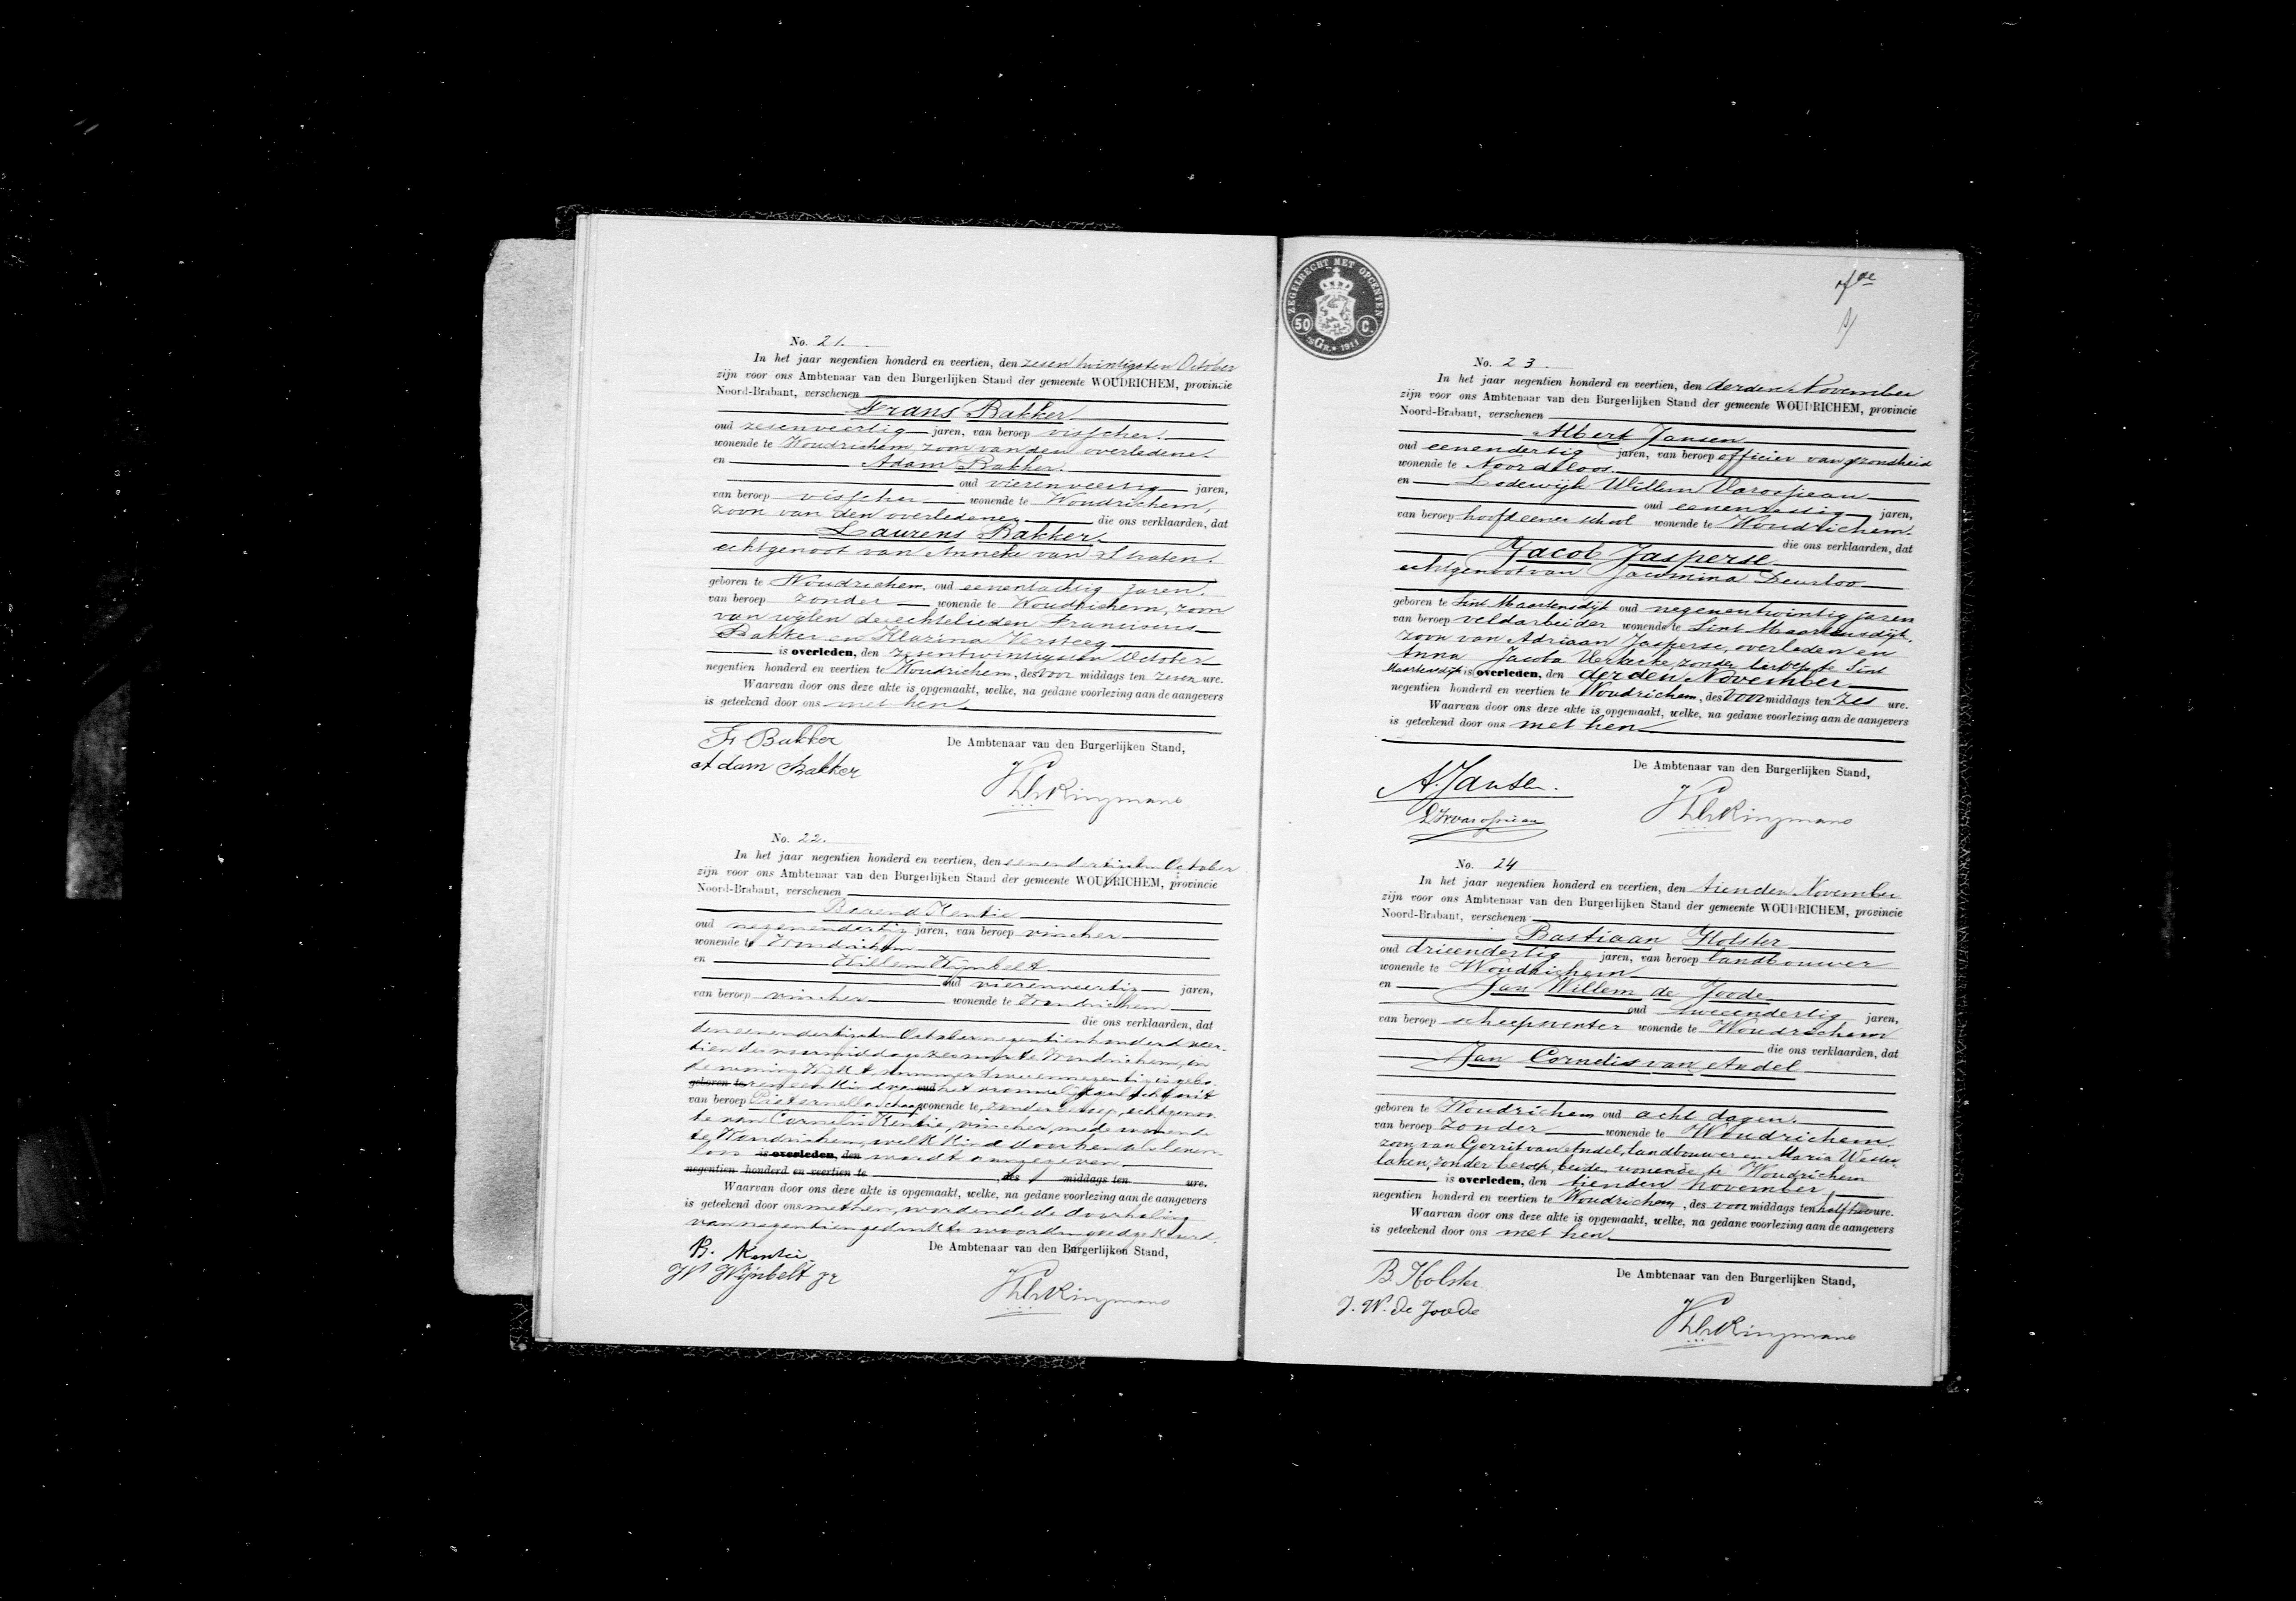 No. 21.
In het jaar negentien honderd en veertien, den zesentwintigsten October
zijn voor ons Ambtenaar van den Burgerlijken Stand der gemeente WOUDRICHEM, provincie
Noord-Brabant, verschenen
Frans Bakker
oud zesenveertig jaren, van beroep visscher.
wonende te Woudrichem, zoon van den overledene.
en Adam Bakker.
oud vierenveertig jaren,
van beroep visscher wonende te Woudrichem,
zoon van den overledene, die ons verklaarden, dat
Laurens Bakker.
echtgenoot van Anneke van Straten.
geboren te Woudrichem, oud eenentachtig jaren.
van beroep zonder wonende te Woudrichem, zoon
van wijlen de echtelieden Franciscus
Bakker en Klazina Versteeg
is overleden, den zesentwintigsten October
negentien honderd en veertien te Woudrichem, des voor middags ten zeven ure.
Waarvan door ons deze akte is opgemaakt, welke, na gedane voorlezing aan de aangevers
is geteekend door ons met hen.
F Bakker
Adam Bakker
De Ambtenaar van den Burgerlijken Stand,
No. 22.
In het jaar negentien honderd en veertien, den eenendertigsten October
zijn voor ons Ambtenaar van den Burgerlijken Stand der gemeente WOUDRICHEM, provincie
Noord-Brabant, verschenen
Berend Kentie
oud negenendertig jaren, van beroep visscher
wonende te Woudrichem
en Willem Wijnbelt
oud vierenveertig jaren,
van beroep visscher wonende te Woudrichem
die ons verklaarden, dat
den eenendertigsten October negentienhonderd veer-
tien des voormiddags zes ure te Woudrichem, in
de woning Wijk A, nummer tweeennegentig is gebo-
geboren te ren een kind van oud het vrouwelijk geslacht uit
van beroep Pieternella Schaap wonende te, zonder beroep, echtgenoo-
te van Cornelis Kentie, visscher, mede wonende
te Woudrichem, welk kind door hen als leven-
loos is overleden, den wordt aangegeven
negentien honderd en veertien te , des middags ten ure.
Waarvan door ons deze akte is opgemaakt, welke, na gedane voorlezing aan de aangevers
is geteekend door ons met hen, wordende de doorhaling
van negentien gedrukte woorden goedgekeurd.
B. Kentie
W Wijnbelt Jr
De Ambtenaar van den Burgerlijken Stand,
ZEGELRECHT MET OPCENTEN
50 C.
1911
7de
No. 23.
In het jaar negentien honderd en veertien, den derden November
zijn voor ons Ambtenaar van den Burgerlijken Stand der gemeente WOUDRICHEM, provincie
Noord-Brabant, verschenen
Albert Jansen
oud eenendertig jaren, van beroep officier van gezondheid
wonende te Noordeloos.
en Lodewijk Willem Varossieau
oud eenenzestig jaren,
van beroep hoofd eener school wonende te Woudrichem.
die ons verklaarden, dat
Jacob Jasperse
echtgenoot van Jacomina Deurloo
geboren te Sint Maartensdijk oud negenentwintig jaren
van beroep veldarbeider wonende te Sint Maartensdijk.
zoon van Adriaan Jasperse, overleden en
Anna Jacoba Verkerke, zonder beroep te Sint
Maartensdijk is overleden, den derden November
negentien honderd en veertien te Woudrichem, des voor middags ten zes ure.
Waarvan door ons deze akte is opgemaakt, welke, na gedane voorlezing aan de aangevers
is geteekend door ons met hen
A. Jansen.
LWVarossieau
De Ambtenaar van den Burgerlijken Stand,
No. 24
In het jaar negentien honderd en veertien, den tienden November
zijn voor ons Ambtenaar van den Burgerlijken Stand der gemeente WOUDRICHEM, provincie
Noord-Brabant, verschenen
Bastiaan Holster
oud drieendertig jaren, van beroep landbouwer
wonende te Woudrichem
en Jan Willem de Joode
oud tweeendertig jaren,
van beroep scheepmeter wonende te Woudrichem
die ons verklaarden, dat
Jan Cornelis van Andel
geboren te Woudrichem oud acht dagen.
van beroep zonder wonende te Woudrichem.
zoon van Gerrit van Andel, landbouwer en Maria Wester-
laken, zonder beroep, beiden wonende te Woudrichem
is overleden, den tienden november
negentien honderd en veertien te Woudrichem, des voor middags ten half twee ure.
Waarvan door ons deze akte is opgemaakt, welke, na gedane voorlezing aan de aangevers
is geteekend door ons met hen.
B Holster
J. W. de Joode
De Ambtenaar van den Burgerlijken Stand,